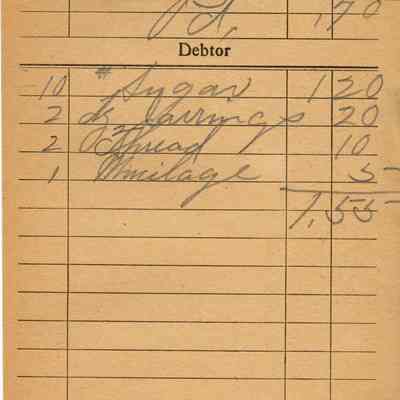 Pd. 1 70
Debtor
10 # Sugar 1 20
2 Dz Jar rings 20
2 Thread 10
1 Mucilage 5
1,55